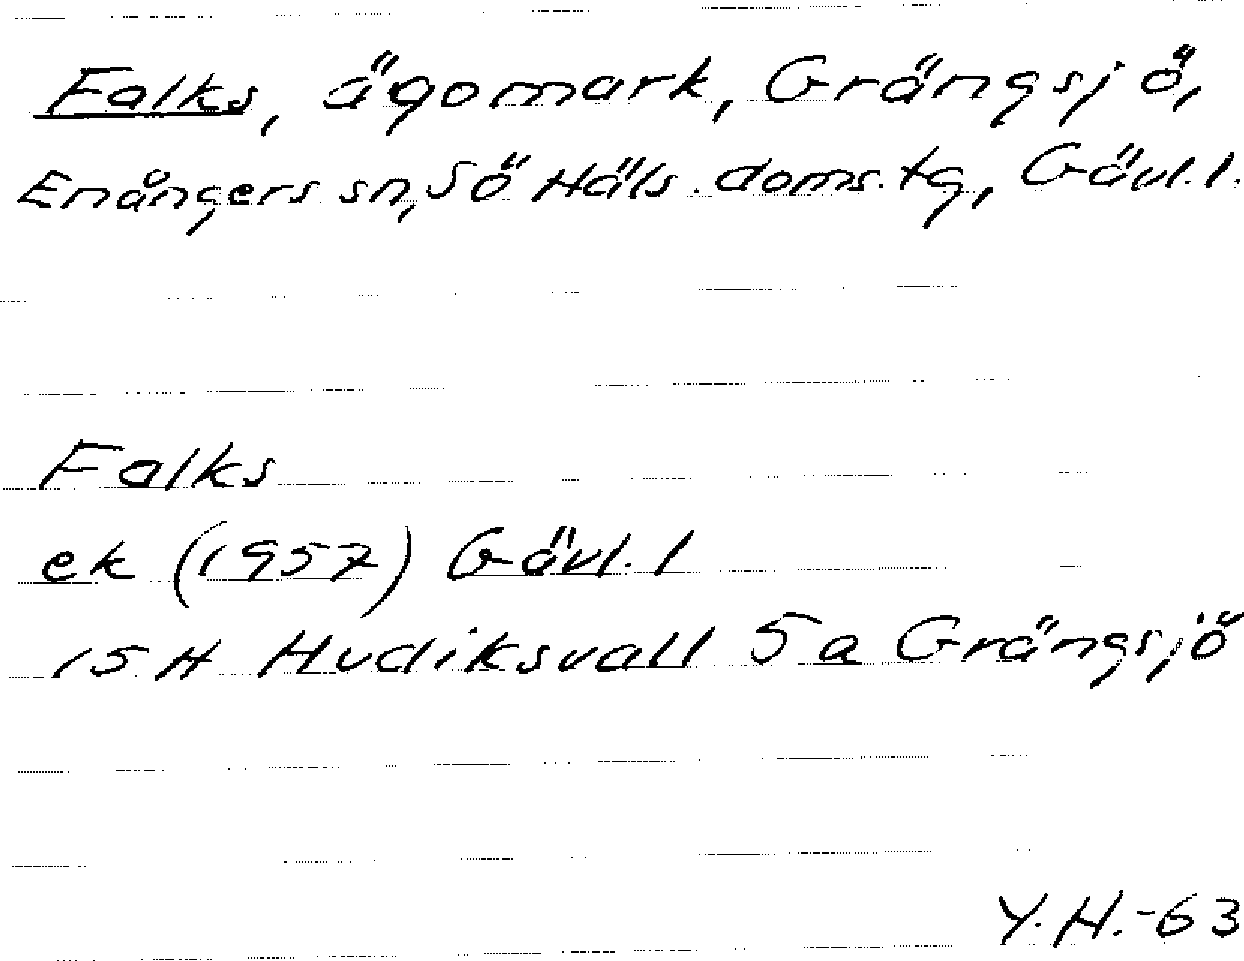 Falks, ägomark, Grängsjö,
Enångers sn, Sö Häls. doms. tg, Gävl. l.
Falks
ek (1957) Gävl. l
15 H Hudiksvall 5a Grängsjö
Y. H. -63